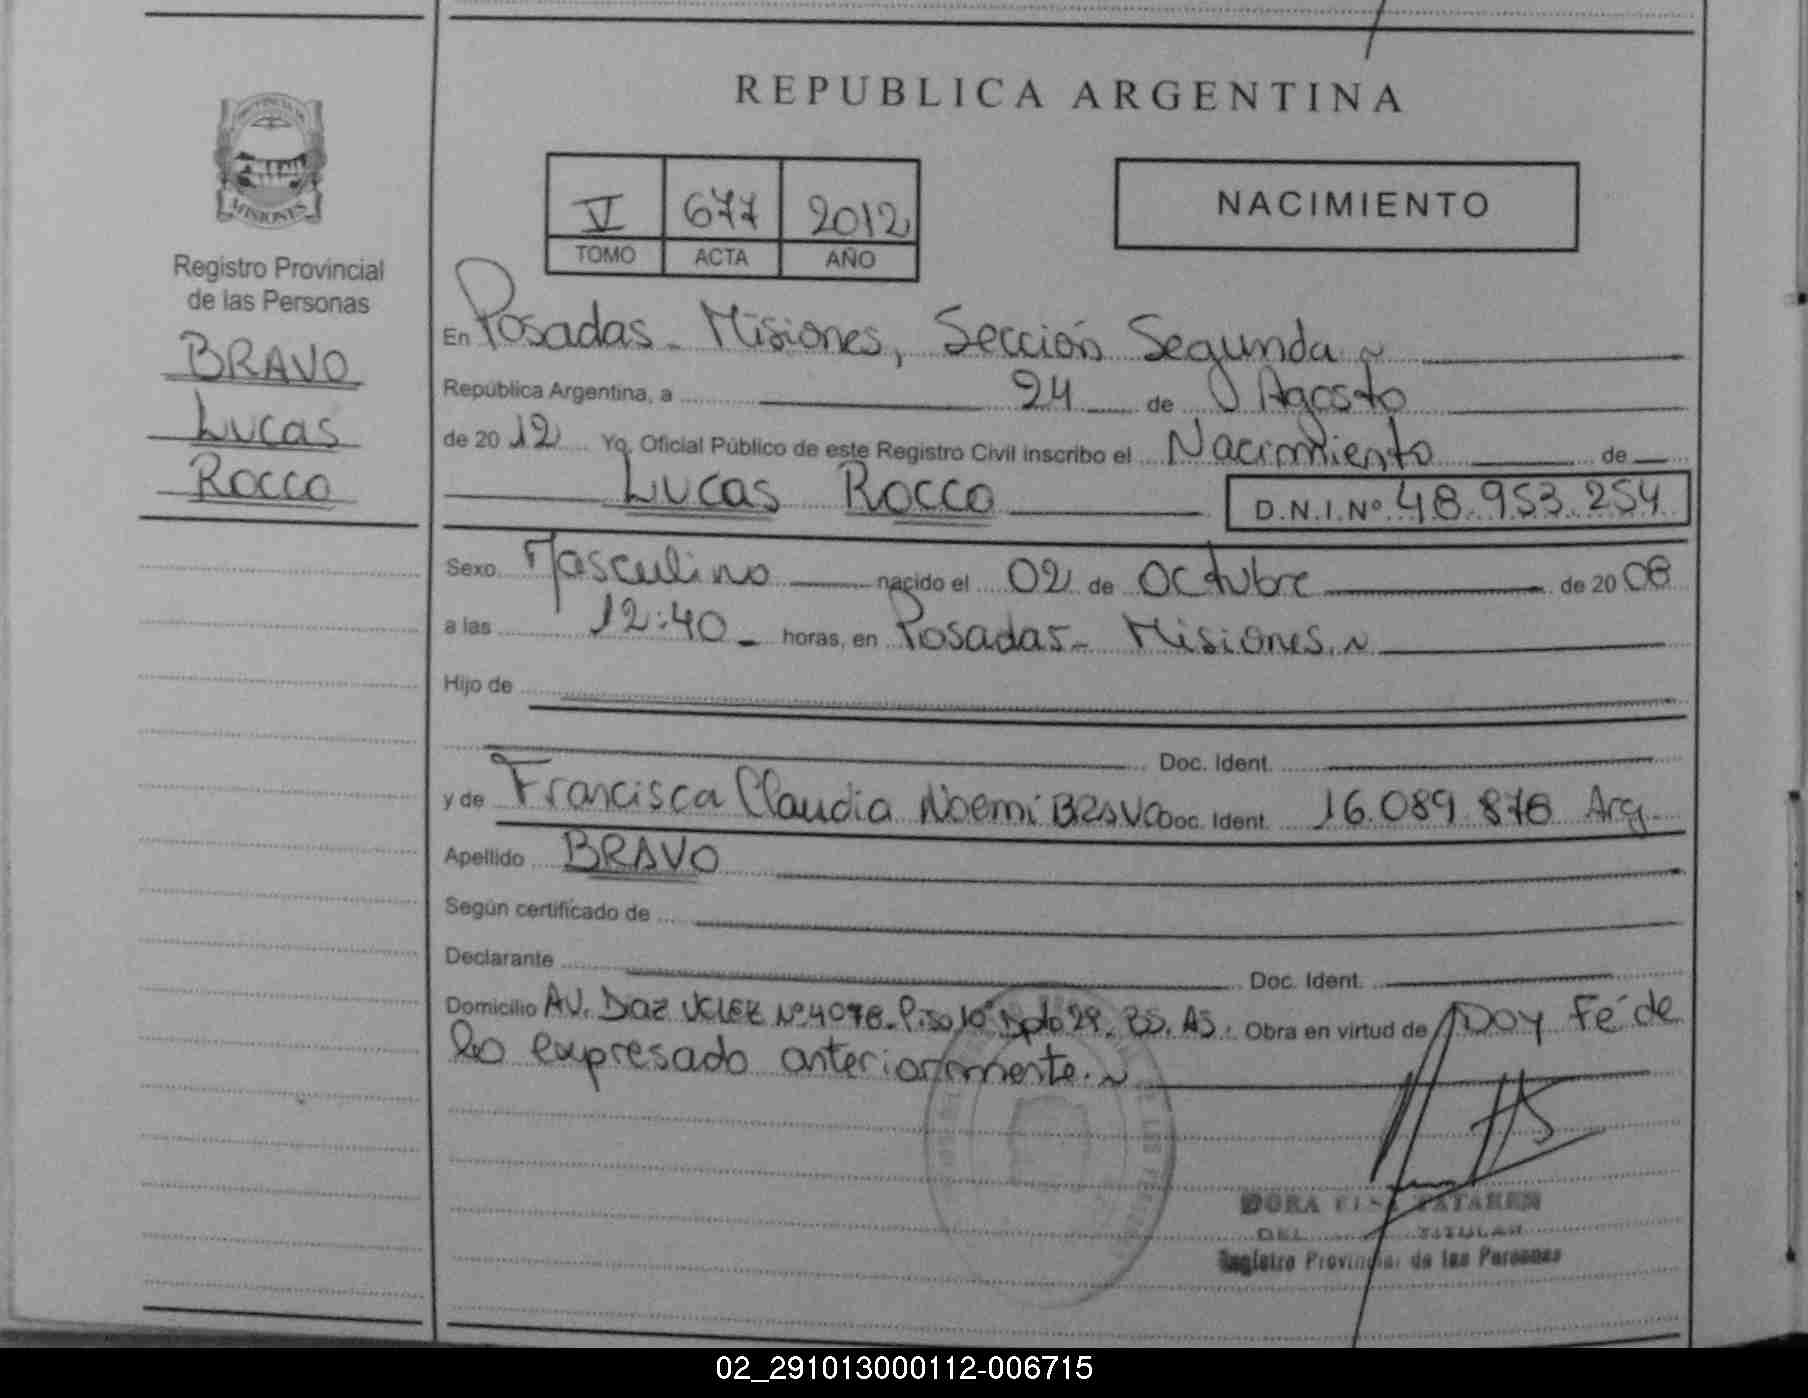 REPUBLICA ARGENTINA
PROVINCIA DE
MISIONES
Registro Provincial
de las Personas
BRAVO
Lucas
Rocco
V 677 2012
TOMO ACTA AÑO
NACIMIENTO
En Posadas - Misiones, Sección Segunda ~
República Argentina, a 24 de Agosto
de 2012 Yo, Oficial Público de este Registro Civil inscribo el Nacimiento de
Lucas Rocco D.N.I.Nº 48.953.254
Sexo Masculino nacido el 02 de Octubre de 2008
a las 12:40 - horas, en Posadas - Misiones. ~
Hijo de
Doc. Ident.
y de Francisca Claudia Noemi BRAVO Doc. Ident. 16.089.878 Arg.
Apellido BRAVO
Según certificado de
Declarante Doc. Ident.
Domicilio AV. Diaz VELEZ Nº 4078. Piso 10º Dpto 29. BS. AS. Obra en virtud de Doy Fé de
lo expresado anteriormente. ~
DORA
DEL TITULAR
Registro Provincial de las Personas
02_291013000112-006715